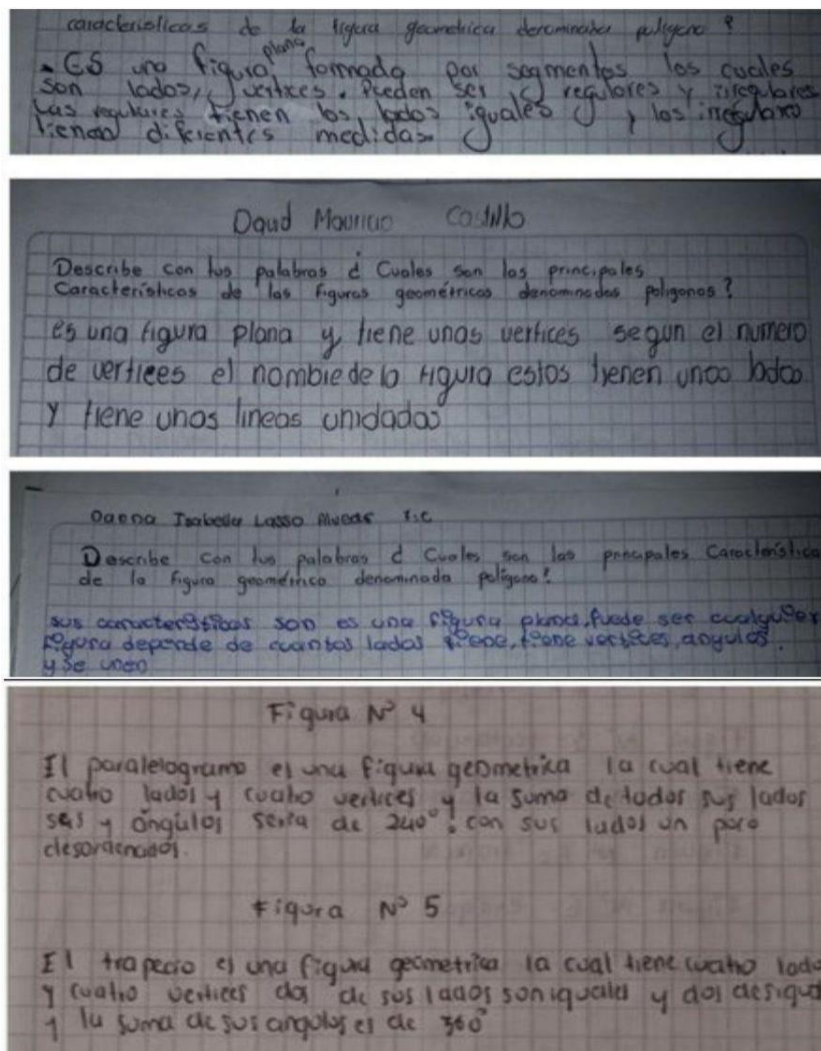 características de la figura geometrica denominada poligono ?
plana
• ES una figura formada por segmentos los cuales
son lados, vertices. Pueden ser regulares y irregulares
Las regulares tienen los lados iguales, los irregulare
tienen diferentes medidas
David Mauricio Castillo
Describe con tus palabras ¿ Cuales son las principales
Características de las figuras geométricas denominadas poligonos?
es una figura plana y tiene unas vertices segun el numero
de vertices el nombre de la figura estos tienen unos lados
y tiene unos lineas unidados
Isabella Lasso
Describe con tus palabras ¿ Cuales son las principales Característica
de la figura geométrica denominada polígono?
sus caracteristicas son es una figura plana, Puede ser cualquier
figura depende de cuantos lados tiene, tiene vertices, angulos,
y se unen
Figura N° 4
El paralelogramo es una figura geometrica la cual tiene
cuatro lados y cuatro vertices y la suma de todos sus lados
seis y ángulos seria de 240° con sus lados un poco
desordenados.
Figura N° 5
El trapecio es una figura geometrica la cual tiene cuatro lado
y cuatro vertices dos de sus lados son iguales y dos desigual
y la suma de sus angulos es de 360°